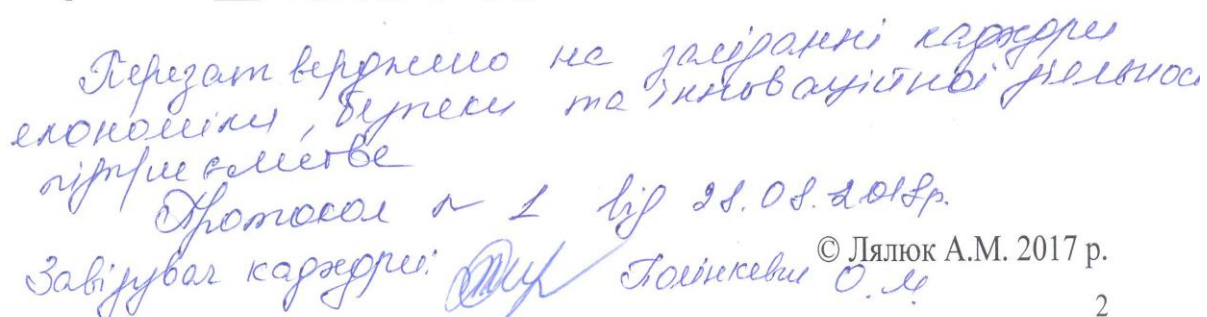 Перезатверджено на засіданні кафедри
економіки, безпеки та інноваційної діяльнос
підприємства
Протокол № 1 від 28.08.2018р.
© Лялюк А.М. 2017 р.
Завідувач кафедри: Полінкевич О.М
2